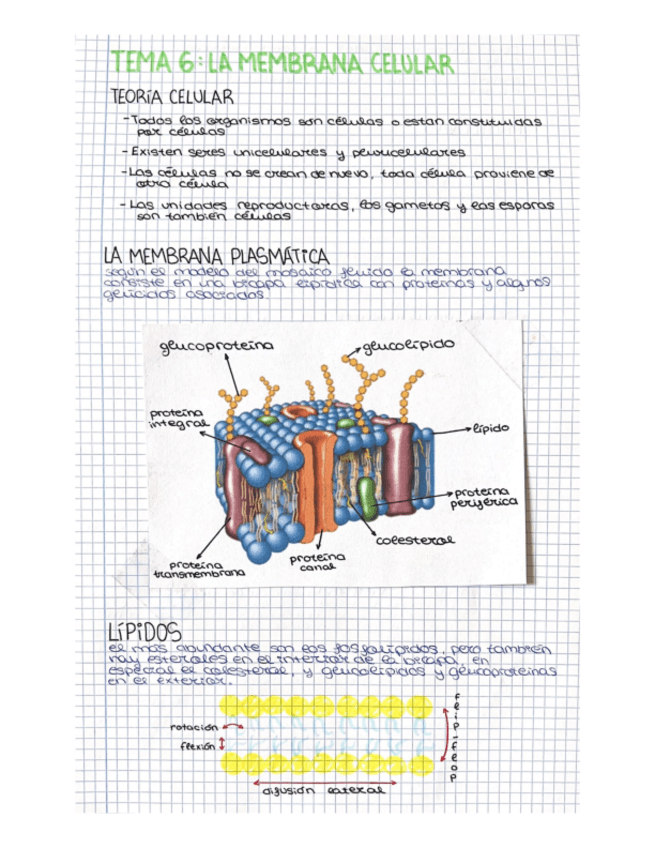 TEMA 6: LA MEMBRANA CELULAR
TEORÍA CELULAR
- Todos los organismos son células o estan constituidas
por células
- Existen seres unicelulares y pluricelulares
- Las células no se crean de nuevo, toda célula proviene de
otra célula
- Las unidades reproductoras, los gametos y las esporas
son también células
LA MEMBRANA PLASMÁTICA
según el modelo del mosaico fluido la membrana
consiste en una bicapa lipídica con proteínas y algunos
glúcidos asociados.
glucoproteína
glucolípido
proteína
integral
lípido
proteína
periférica
colesterol
proteína
transmembrana
proteína
canal
LÍPIDOS
el más abundante son los fosfolípidos, pero también
hay esteroles en el interior de la bicapa, en
especial el colesterol, y glucolípidos y glucoproteínas
en el exterior.
rotación
flexión
flip-flop
difusión lateral